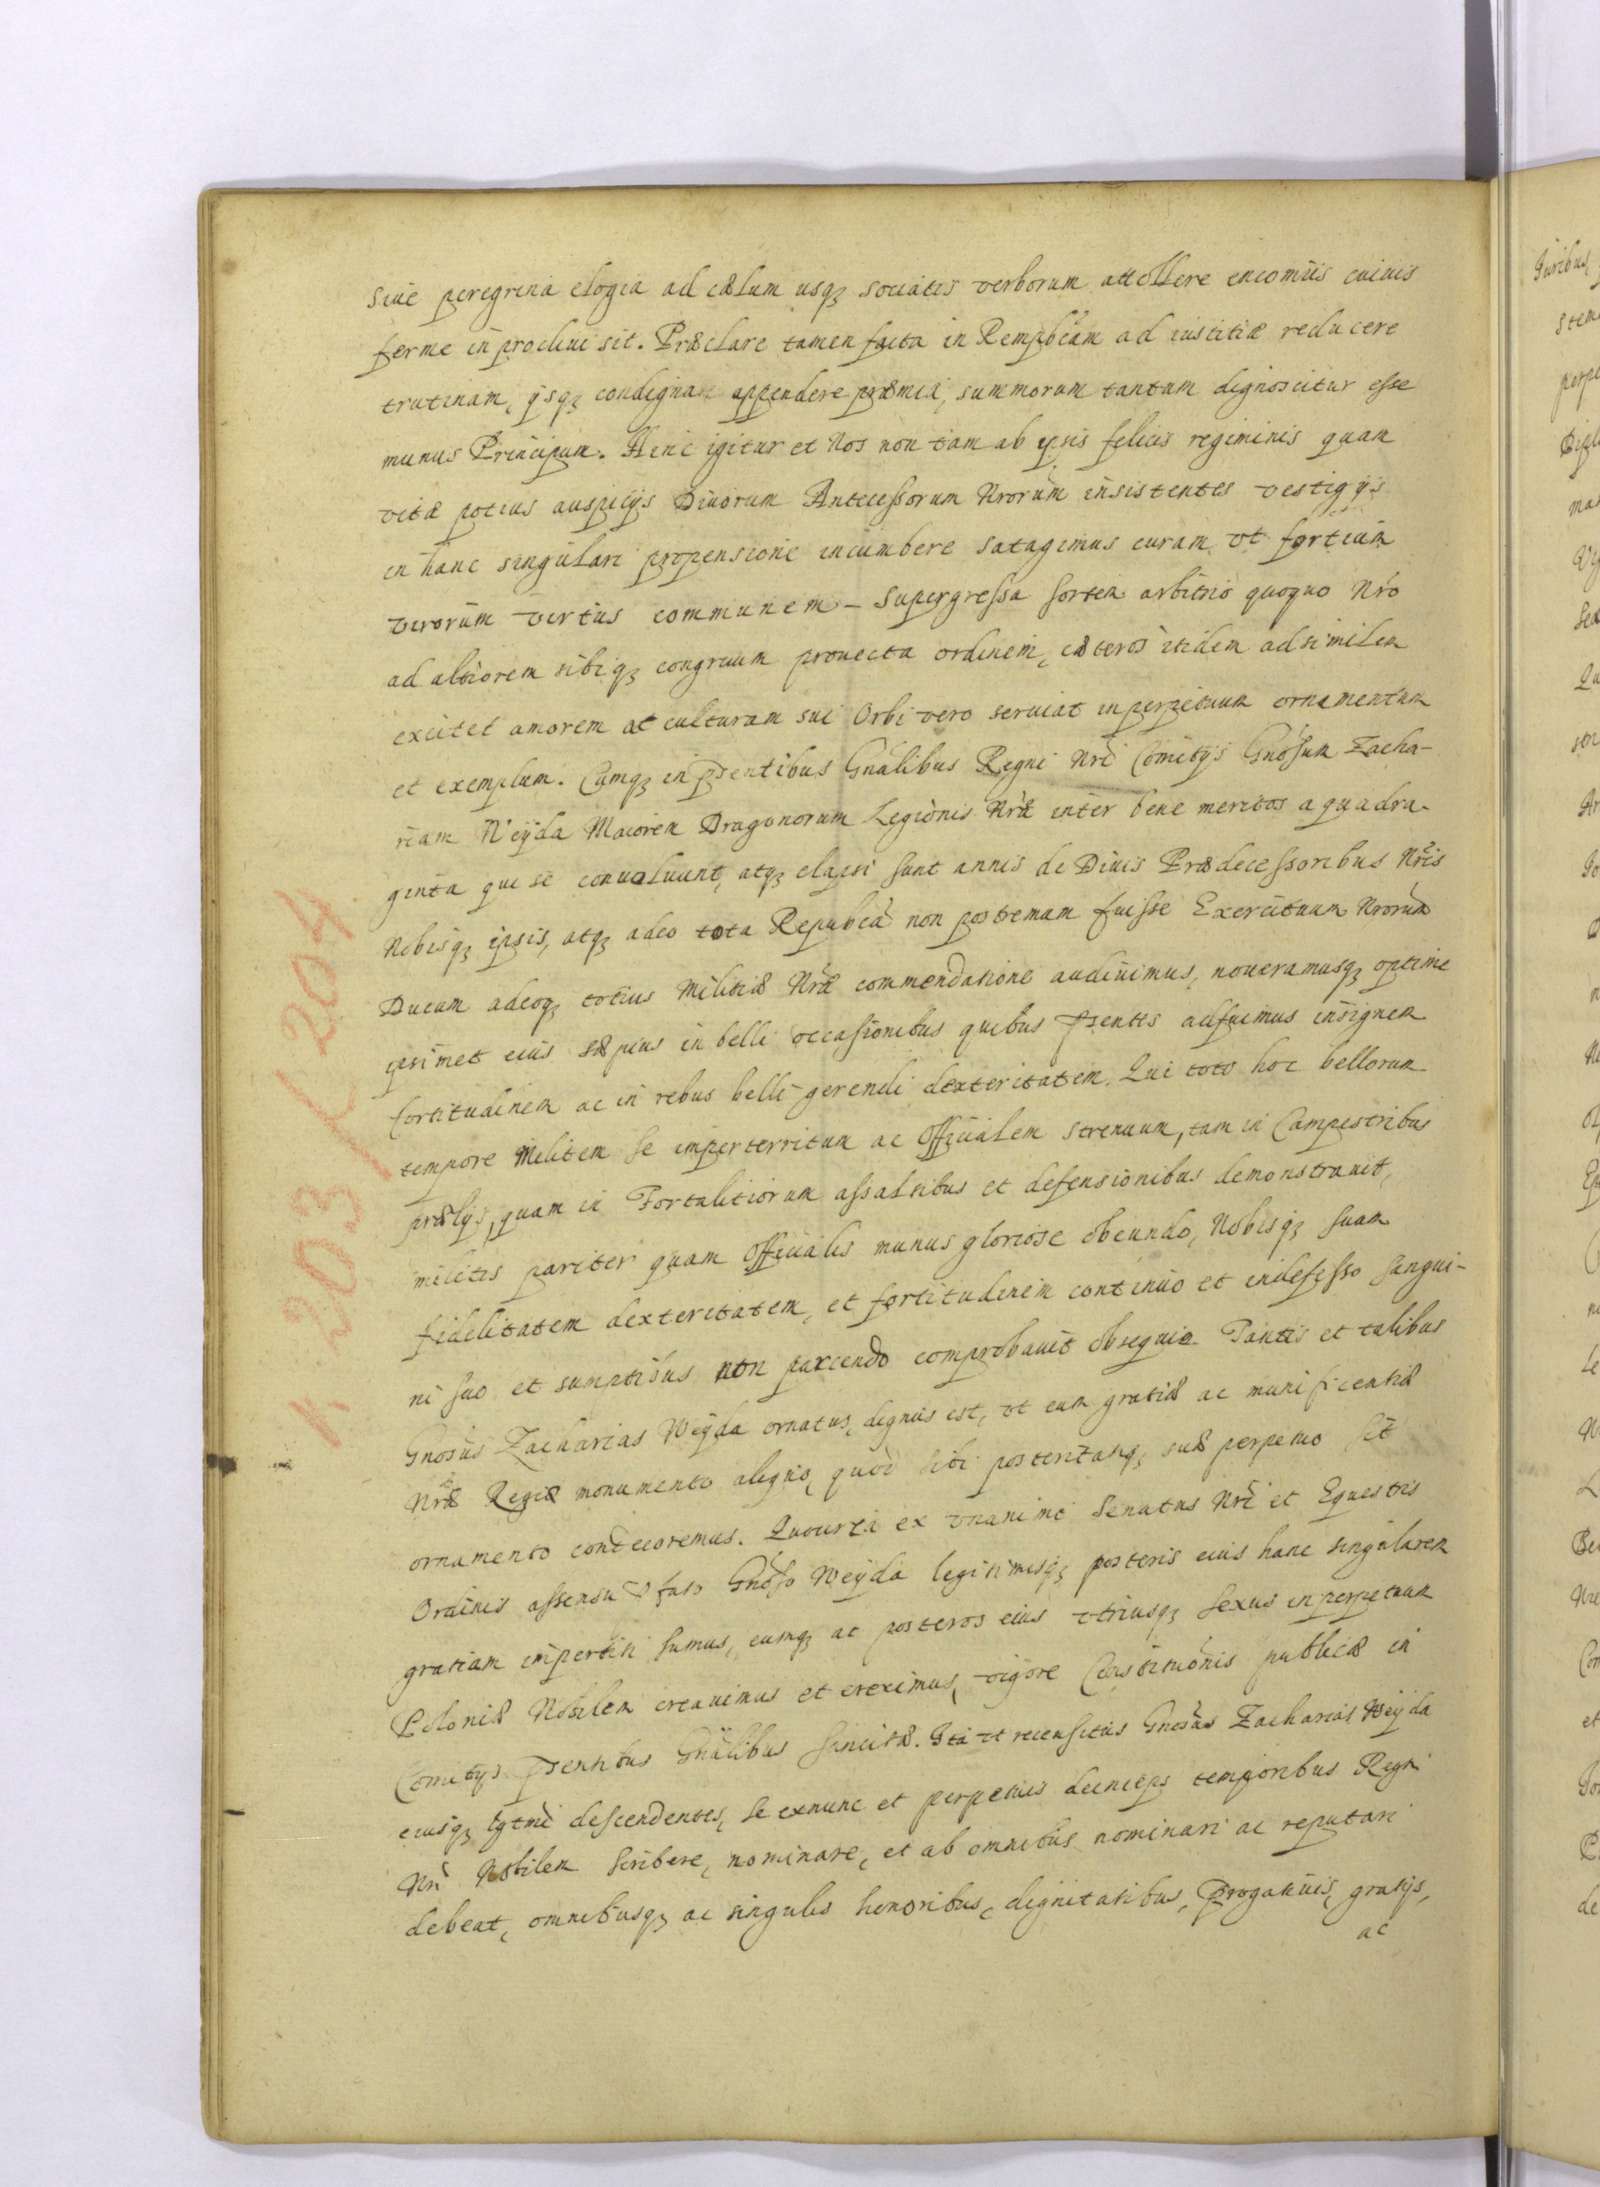 siue peregrina elogia ad cælum usq; sociatis verborum attollere encomiis cuiuis
ferme in procliui sit. Præclare tamen facta in Rempbcam ad iustitiæ reducere
trutinam, ijsq; condignam appendere præmia, summorum tantum dignoscitur esse
munus Principum. Hinc igitur et Nos non tam ab ipsis felicis regiminis quam
vitæ potius auspicijs Diuorum Antecessorum Nrorum insistentes vestigijs
in hanc singulari propensione incumbere satagimus curam vt fortium
virorum virtus communem supergressa sortem arbitrio quoquo Nro
ad altiorem sibiq; congruum prouecta ordinem, cæteros itidem ad similem
excitet amorem ac culturam sui Orbi vero seruiat in perpetuum ornamentum
et exemplum. Cumq; in pntibus Gnalibus Regni Nri Comitijs Gnosum Zacha-
riam Weÿda Maiorem Dragonorum Legionis Nræ inter bene meritos a quadra-
ginta qui se conuoluunt, atq; elapsi sunt annis de Diuis Prædecessoribus Nris
Nobisq; ipsis, atq; adeo tota Repubca non postremam fuisse Exercituum Nrorum
Ducum adeoq; totius Militiæ Nræ commendatione audiuimus, noueramusq; optime
ipsimet eius sæpius in belli occasionibus quibus pntes adfuimus insignem
fortitudinem ac in rebus belli gerendi dexteritatem. Qui toto hoc bellorum
tempore Militem se imperterritum ac Officialem strenuum, tam in Campestribus
prælijs, quam in Fortalitiorum assaltibus et defensionibus demonstrauit,
militis pariter quam Officialis munus gloriose obeundo, Nobisq; suam
fidelitatem dexteritatem, et fortitudinem continuo et indefesso sangui-
ni suo et sumptibus non parcendo comprobauit obsequio. Tantis et talibus
Gnosus Zacharias Weÿda ornatus, dignus est, vt eum gratiæ ac munificentiæ
Nræ Regiæ monumento aliquo, quod sibi posteritatiq; suæ perpetuo sit
ornamento condecoremus. Quocirca ex vnanimi Senatus Nri et Equestris
Ordinis assensu pfato Gnoso Weÿda legitimisq; posteris eius hanc singularem
gratiam impertiti sumus, eumq; ac posteros eius vtriusq; sexus in perpetuum
Poloniæ Nobilem creauimus et ereximus, vigore Constitutionis publicæ in
Comitijs pntibus Gnalibus sancitæ. Ita vt recensitus Gnosus Zacharias Weÿda
eiusq; lgtmi descendentes, se exnunc et perpetuis deinceps temporibus Regni
Nri Nobilem scribere, nominare, et ab omnibus nominari ac reputari
debeat, omnibusq; ac singulis honoribus, dignitatibus, prrogatiuis, gratijs,
ac
k. 203 / 204